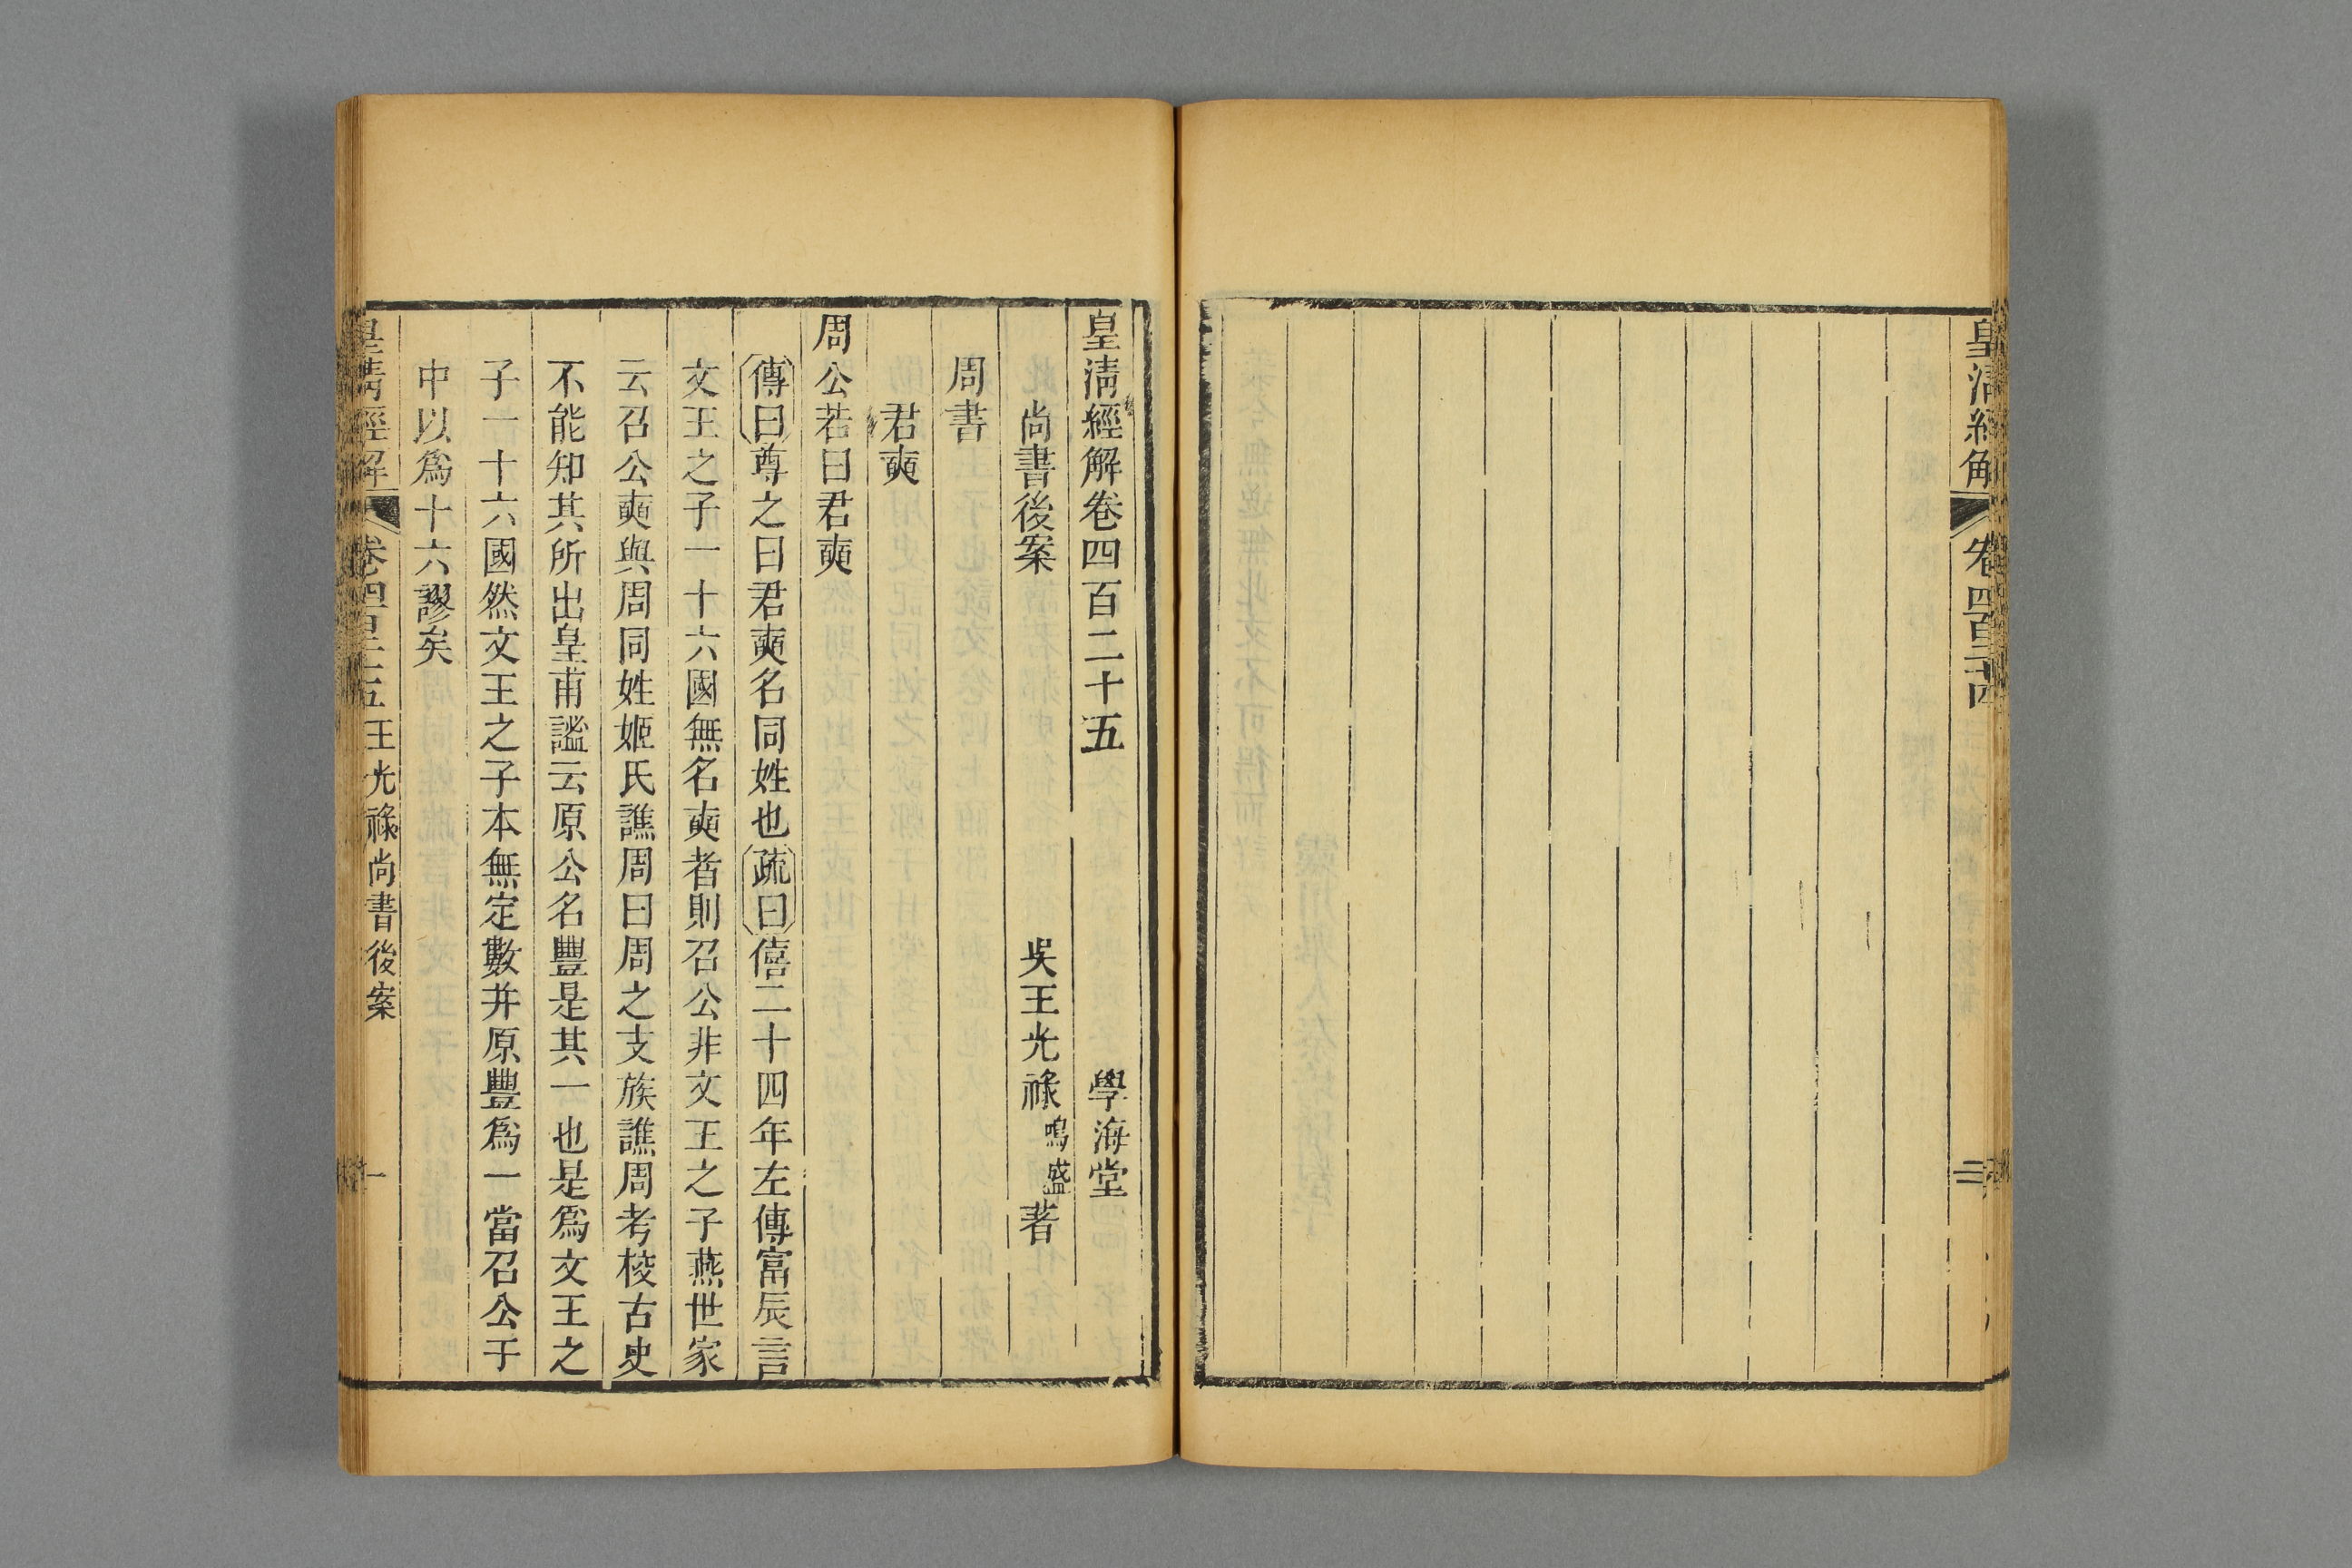 皇清經解
卷四百二十四
皇清經解卷四百二十五
學海堂
尚書後案
吳王光祿鳴盛著
周書
君奭
周公若曰君奭
傳曰尊之曰君奭名同姓也疏曰僖二十四年左傳富辰言
文王之子一十六國無名奭者則召公非文王之子燕世家
云召公奭與周同姓姬氏譙周曰周之支族譙周考校古史
不能知其所出皇甫謐云原公名豐是其一也是爲文王之
子一十六國然文王之子本無定數并原豐爲一當召公于
中以爲十六謬矣
皇清經解
卷四百二十五
王光祿尚書後案
一